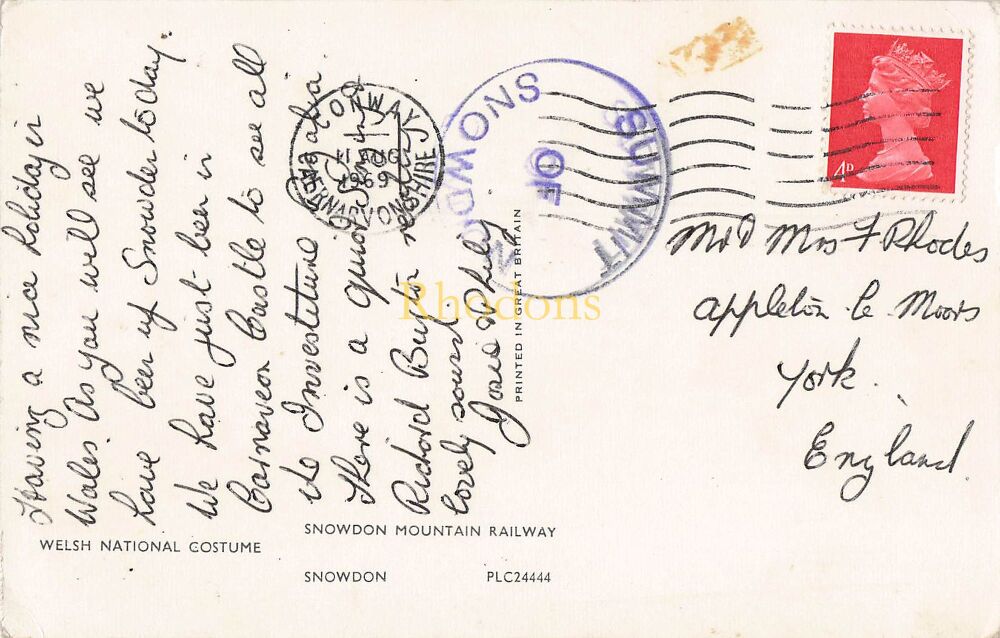 Having a nice holiday in
Wales. As you will see we
have been up Snowden to day.
We have just been in
Carnaveon Castle to see all
the Investiture
There is a
Richard Burton
lovely sound.
Josie & Philip
Mr & Mrs F Rhodes
Appleton Le Moors
York.
England
4D
SUMMIT
OF
SNOWDON
CONWAY
11 AUG
1969
CAERNARVONSHIRE
Rhodons
PRINTED IN GREAT BRITAIN
WELSH NATIONAL COSTUME
SNOWDON MOUNTAIN RAILWAY
SNOWDON
PLC24444